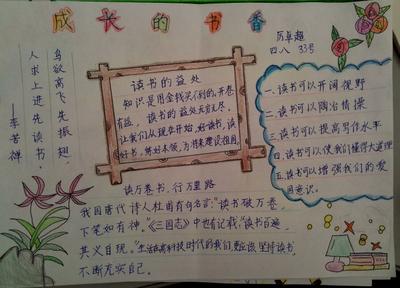 成长的书香
历卓超
四八 33号
鸟欲高飞先振翅,
人求上进先读书.
——李苦禅
读书的益处
知识是用金钱买不到的,开卷
有益. 读书的益处无穷无尽.
让我们从现在开始,好读书,读
好书,练好本领,为将来建设祖国.
一、读书可以开阔视野
二、读书可以陶冶情操
三、读书可以提高写作水平
四、读书可以使我们懂得大道理
五、读书可以增强我们的爱
国意识.
读万卷书,行万里路
我国唐代诗人杜甫有句名言:“读书破万卷,
下笔如有神.”《三国志》中也有记载:“读书百遍,
其义自现.”生活在高科技时代的我们,更应该坚持读书,
不断充实自己.